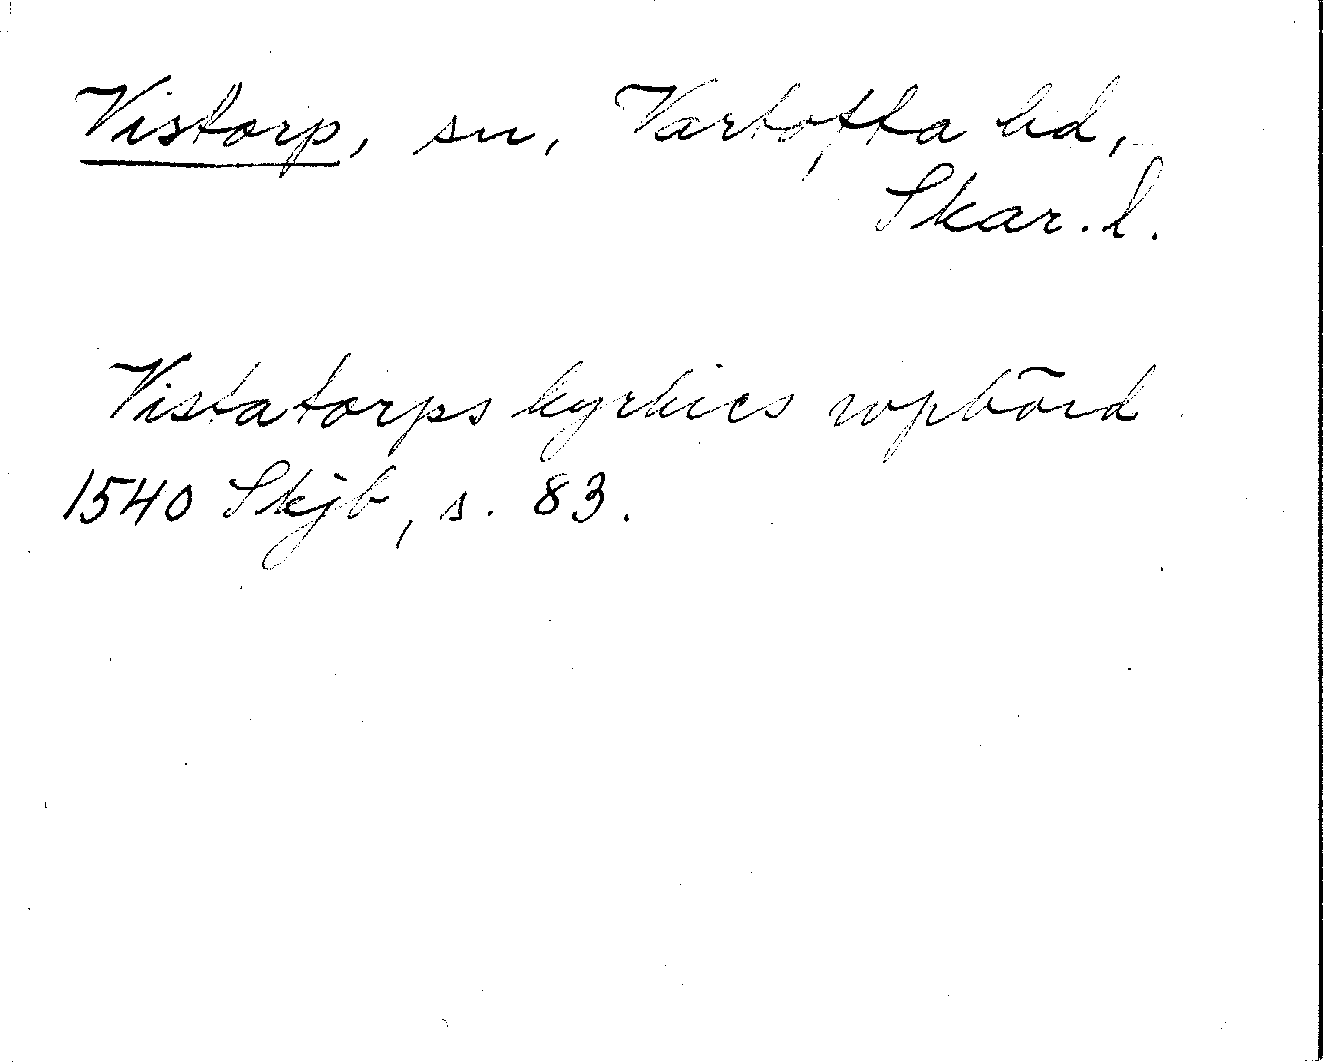 Vistorp, sn, Vartofta hd,
Skar. l.
Vistatorps kyrkies wpbörd
1540 Skjb, s. 83.